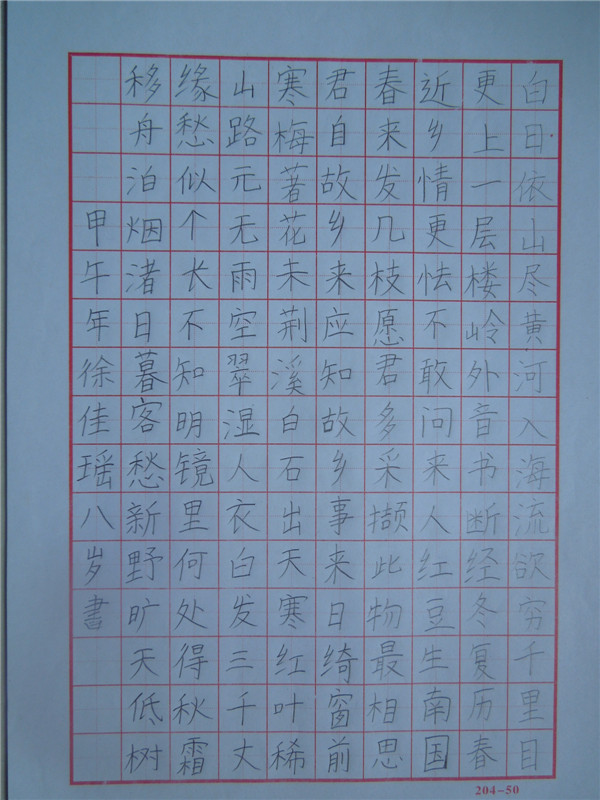 白日依山尽黄河入海流欲穷千里目
更上一层楼岭外音书断经冬复历春
近乡情更怯不敢问来人红豆生南国
春来发几枝愿君多采撷此物最相思
君自故乡来应知故乡事来日绮窗前
寒梅著花未荆溪白石出天寒红叶稀
山路元无雨空翠湿人衣白发三千丈
缘愁似个长不知明镜里何处得秋霜
移舟泊烟渚日暮客愁新野旷天低树
甲午年徐佳瑶八岁書
204-50